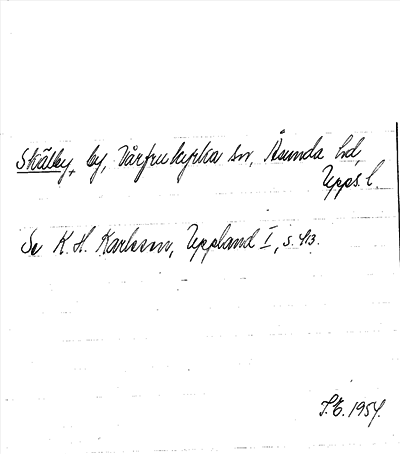 Skälby, by, Vårfrukyrka sn, Åsunda hd,
Upps. l.
Se K. H. Karlsson, Uppland I, s. 413.
1954.